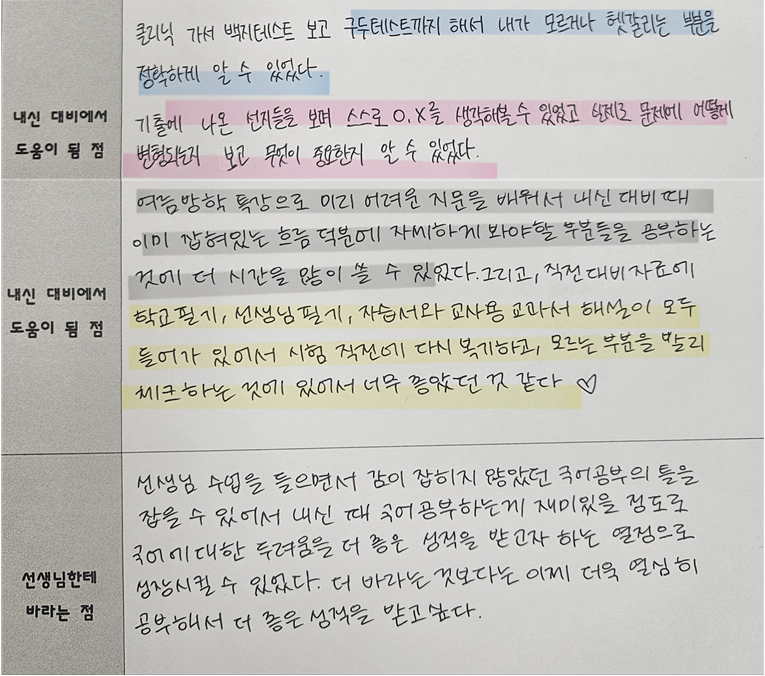 클리닉 가서 백지테스트 보고 구두테스트까지 해서 내가 모르거나 헷갈리는 부분을
정확하게 알 수 있었다.
내신 대비에서
도움이 됨 점
기출에 나온 선지들을 보며 스스로 O,X를 생각해볼 수 있었고 실제로 문제에 어떻게
변형되는지 보고 무엇이 중요한지 알 수 있었다.
여름방학 특강으로 미리 어려운 지문을 배워서 내신 대비 때
이미 잡혀있는 흐름 덕분에 자세하게 봐야할 부분들을 공부하는
것에 더 시간을 많이 쓸 수 있었다. 그리고, 직전대비자료에
내신 대비에서
도움이 됨 점
학교필기, 선생님필기, 자습서와 교사용 교과서 해설이 모두
들어가 있어서 시험 직전에 다시 복기하고, 모르는 부분을 빨리
체크하는 것에 있어서 너무 좋았던 것 같다 ♡
선생님한테
바라는 점
선생님 수업을 들으면서 감이 잡히지 않았던 국어공부의 틀을
잡을 수 있어서 내신 때 국어공부하는게 재미있을 정도로
국어에 대한 두려움을 더 좋은 성적을 받고자 하는 열정으로
성장시킬 수 있었다. 더 바라는 것보다는 이제 더욱 열심히
공부해서 더 좋은 성적을 받고싶다.